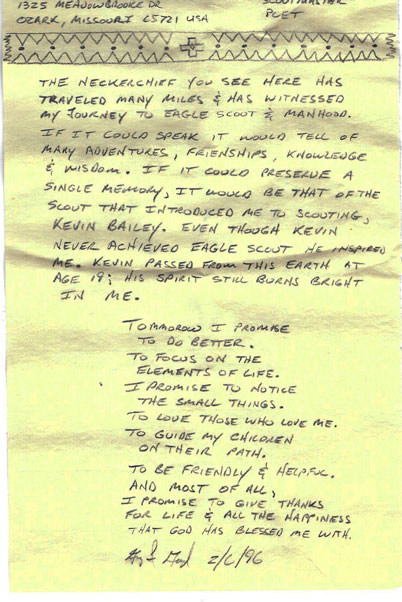 1325 MEADOWBROOKE DR
SCOUTMASTER
OZARK, MISSOURI 65721 USA
POET
THE NECKERCHIEF YOU SEE HERE HAS
TRAVELED MANY MILES & HAS WITNESSED
MY JOURNEY TO EAGLE SCOUT & MANHOOD.
IF IT COULD SPEAK IT WOULD TELL OF
MANY ADVENTURES, FRIENSHIPS, KNOWLEDGE
& WISDOM. IF IT COULD PRESERVE A
SINGLE MEMORY, IT WOULD BE THAT OF THE
SCOUT THAT INTRODUCED ME TO SCOUTING,
KEVIN BAILEY. EVEN THOUGH KEVIN
NEVER ACHIEVED EAGLE SCOUT HE INSPIRED
ME. KEVIN PASSED FROM THIS EARTH AT
AGE 19; HIS SPIRIT STILL BURNS BRIGHT
IN ME.
TOMMOROW I PROMISE
TO DO BETTER.
TO FOCUS ON THE
ELEMENTS OF LIFE.
I PROMISE TO NOTICE
THE SMALL THINGS.
TO LOVE THOSE WHO LOVE ME.
TO GUIDE MY CHILDREN
ON THEIR PATH.
TO BE FRIENDLY & HELPFUL.
AND MOST OF ALL,
I PROMISE TO GIVE THANKS
FOR LIFE & ALL THE HAPPINESS
THAT GOD HAS BLESSED ME WITH.
2/6/96